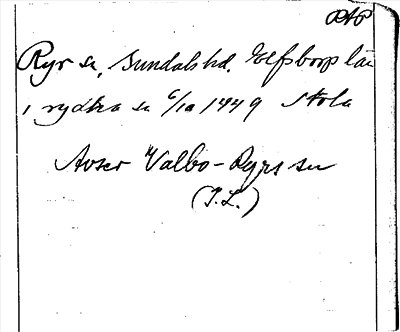 PAP
Ryr sn, Sundals hd. Elfsborgs län
i rydha sn 6/10 1449 Stola
Avser Valbo-Ryrs sn
(I.L.)